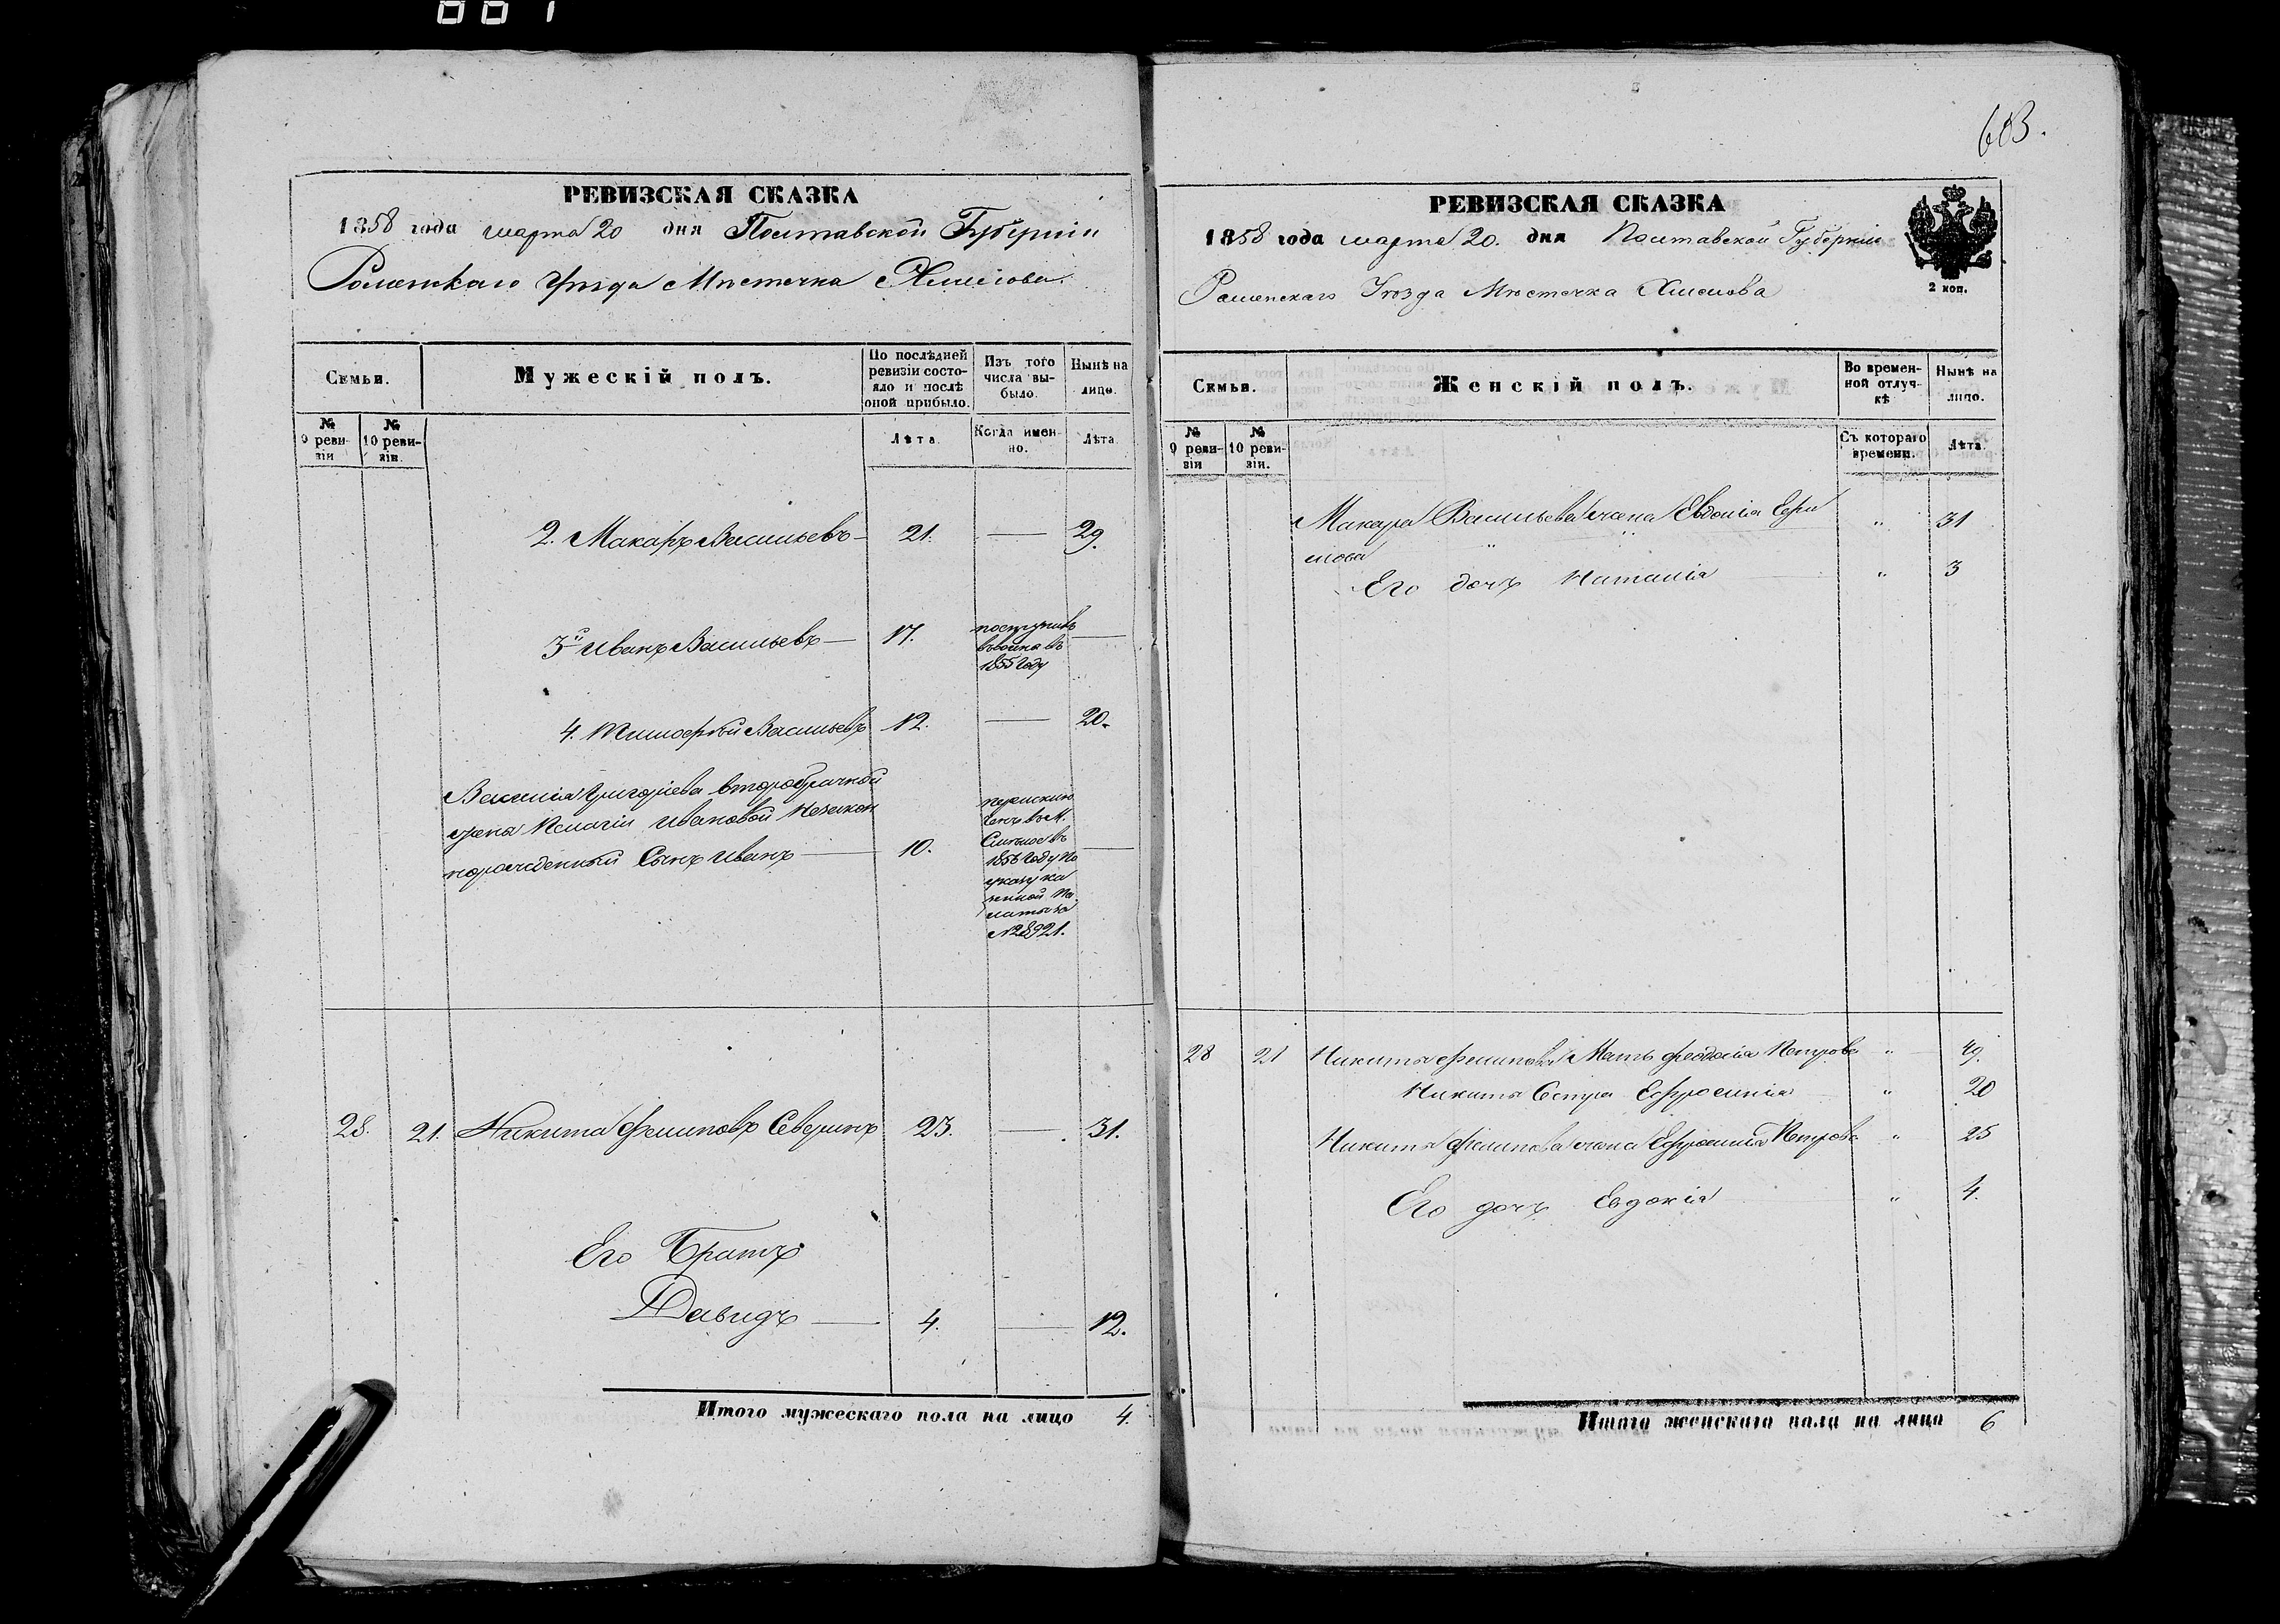 667
РЕВИЗСКАЯ СКАЗКА
1858 года марта 20 дня Полтавской Губерніи
Роменскаго Уѣзда Мѣстечка Хмелова.
Семьи.
Мужескій полъ.
По послѣдней ревизіи состояло и послѣ оной прибыло.
Изъ того числа выбыло.
Нынѣ на лицо.
№ 9 ревизіи
№ 10 ревизіи.
Лѣта.
Когда именно.
Лѣта.
2. Макаръ Васильевъ — 21. — 29.
3й Иванъ Васильевъ — 17.
поступилъ
въ
1855 Году
—
4. Тимофѣй Васильевъ 12. — 20.
Василія Григоріева второбрачной
жены Ивановой Незакон
норожденный Сынъ Иванъ — 10.
перечис
ленъ въ М.
въ
1856 Году По
указу ка
зенной Па
латы за
№ 8921.
—
28. 21. Никита Филиповъ Северинъ 23. — 31.
Его Братъ
Давидъ — 4. — 12.
Итого мужескаго пола на лицо 4.
603.
РЕВИЗСКАЯ СКАЗКА
1858 года марта 20. дня Полтавской Губерніи
Роменскаго Уѣзда Мѣстечка Хмелова
2 коп.
Семьи.
Женскій полъ.
Во временной отлучкѣ
Нынѣ на лицо.
№ 9 ревизіи
№ 10 ревизіи.
Съ котораго времени.
Лѣта.
Макара Васильева жена Евдокія Ефи " 31
мова
Его дочъ Наталія " 3
28 21 Никиты Филипова Мать Феодосія Петрова " 49.
Никиты Сестра Ефросинія " 20
Никиты Филипова жена Ефросинія Петрова " 25
Его дочъ Евдокія " 4.
Итого женскаго пола на лицо 6